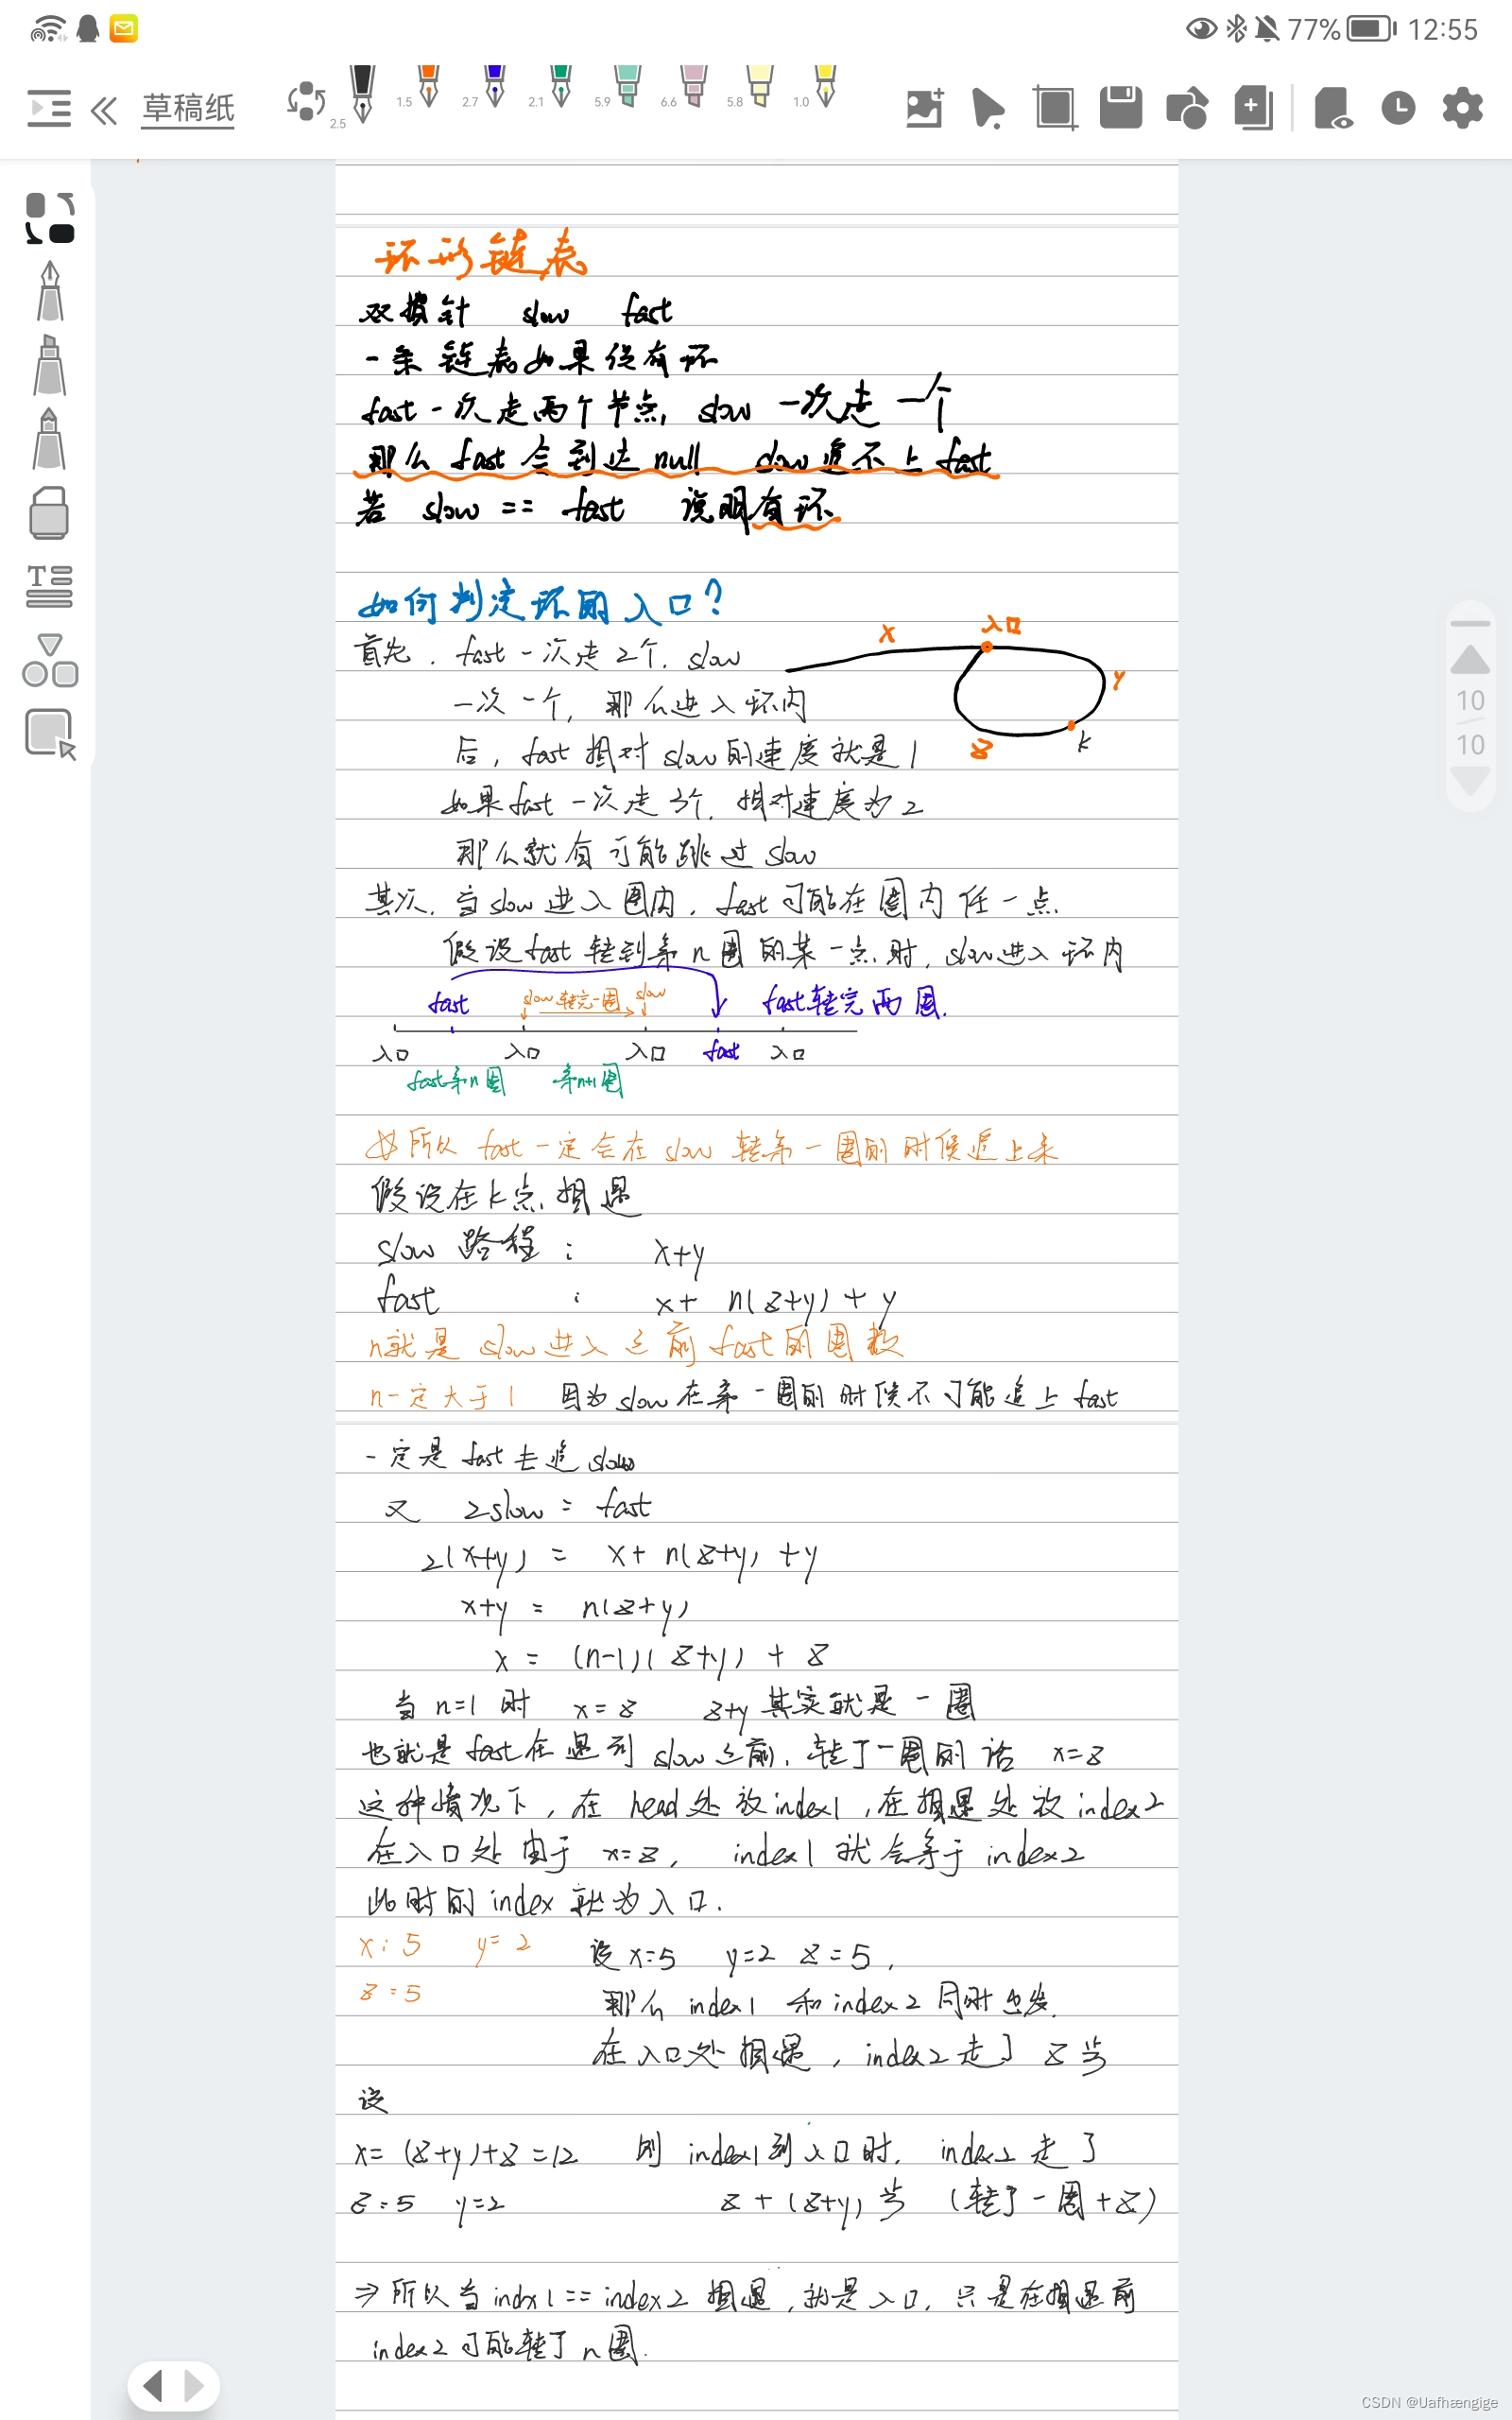 77% 12:55
草稿纸
2.5 1.5 2.7 2.1 5.9 6.6 5.8 1.0
10
10
环形链表
双指针 slow fast
一条链表如果没有环
fast一次走两个节点, slow 一次走一个
那么 fast会到达null slow追不上fast
若 slow == fast 说明有环
如何判定环的入口?
首先. fast一次走2个. slow
一次一个, 那么进入环内
后, fast相对slow的速度就是1
如果fast一次走3个. 相对速度为2
那么就有可能跳过slow
X 入口 Y Z K
其次. 当slow进入圈内, fast可能在圈内任一点.
假设fast转到第n圈的某一点时, slow进入环内
fast slow转完一圈 slow fast转完两圈.
入口 入口 入口 fast 入口
fast第n圈 第n+1圈
所以 fast一定会在slow 转第一圈的时候追上来
假设在k点相遇
slow 路程: x+y
fast : x+ n(z+y)+y
n就是slow进入之前fast的圈数
n一定大于1 因为slow在第一圈的时候不可能追上fast
一定是fast去追slow
又 2slow = fast
2(x+y) = x+ n(z+y) +y
x+y = n(z+y)
x = (n-1)(z+y) + z
当 n=1 时 x=z z+y其实就是一圈
也就是fast在遇到slow之前, 转了一圈的话 x=z
这种情况下, 在head处放index1, 在相遇处放index2
在入口处由于 x=z, index1就会等于index2
此时的index就为入口.
x: 5 y= 2 设x=5 y=2 z=5,
z=5 那么 index1 和index2同时出发.
在入口处相遇, index2走了 z步
设
x= (z+y)+z =12 则 index1到入口时, index2走了
z=5 y=2 z + (z+y)步 (转了一圈+z)
⇒所以当indx1==index2相遇,就是入口, 只是在相遇前
index2可能转了n圈.
CSDN @Uafhængige